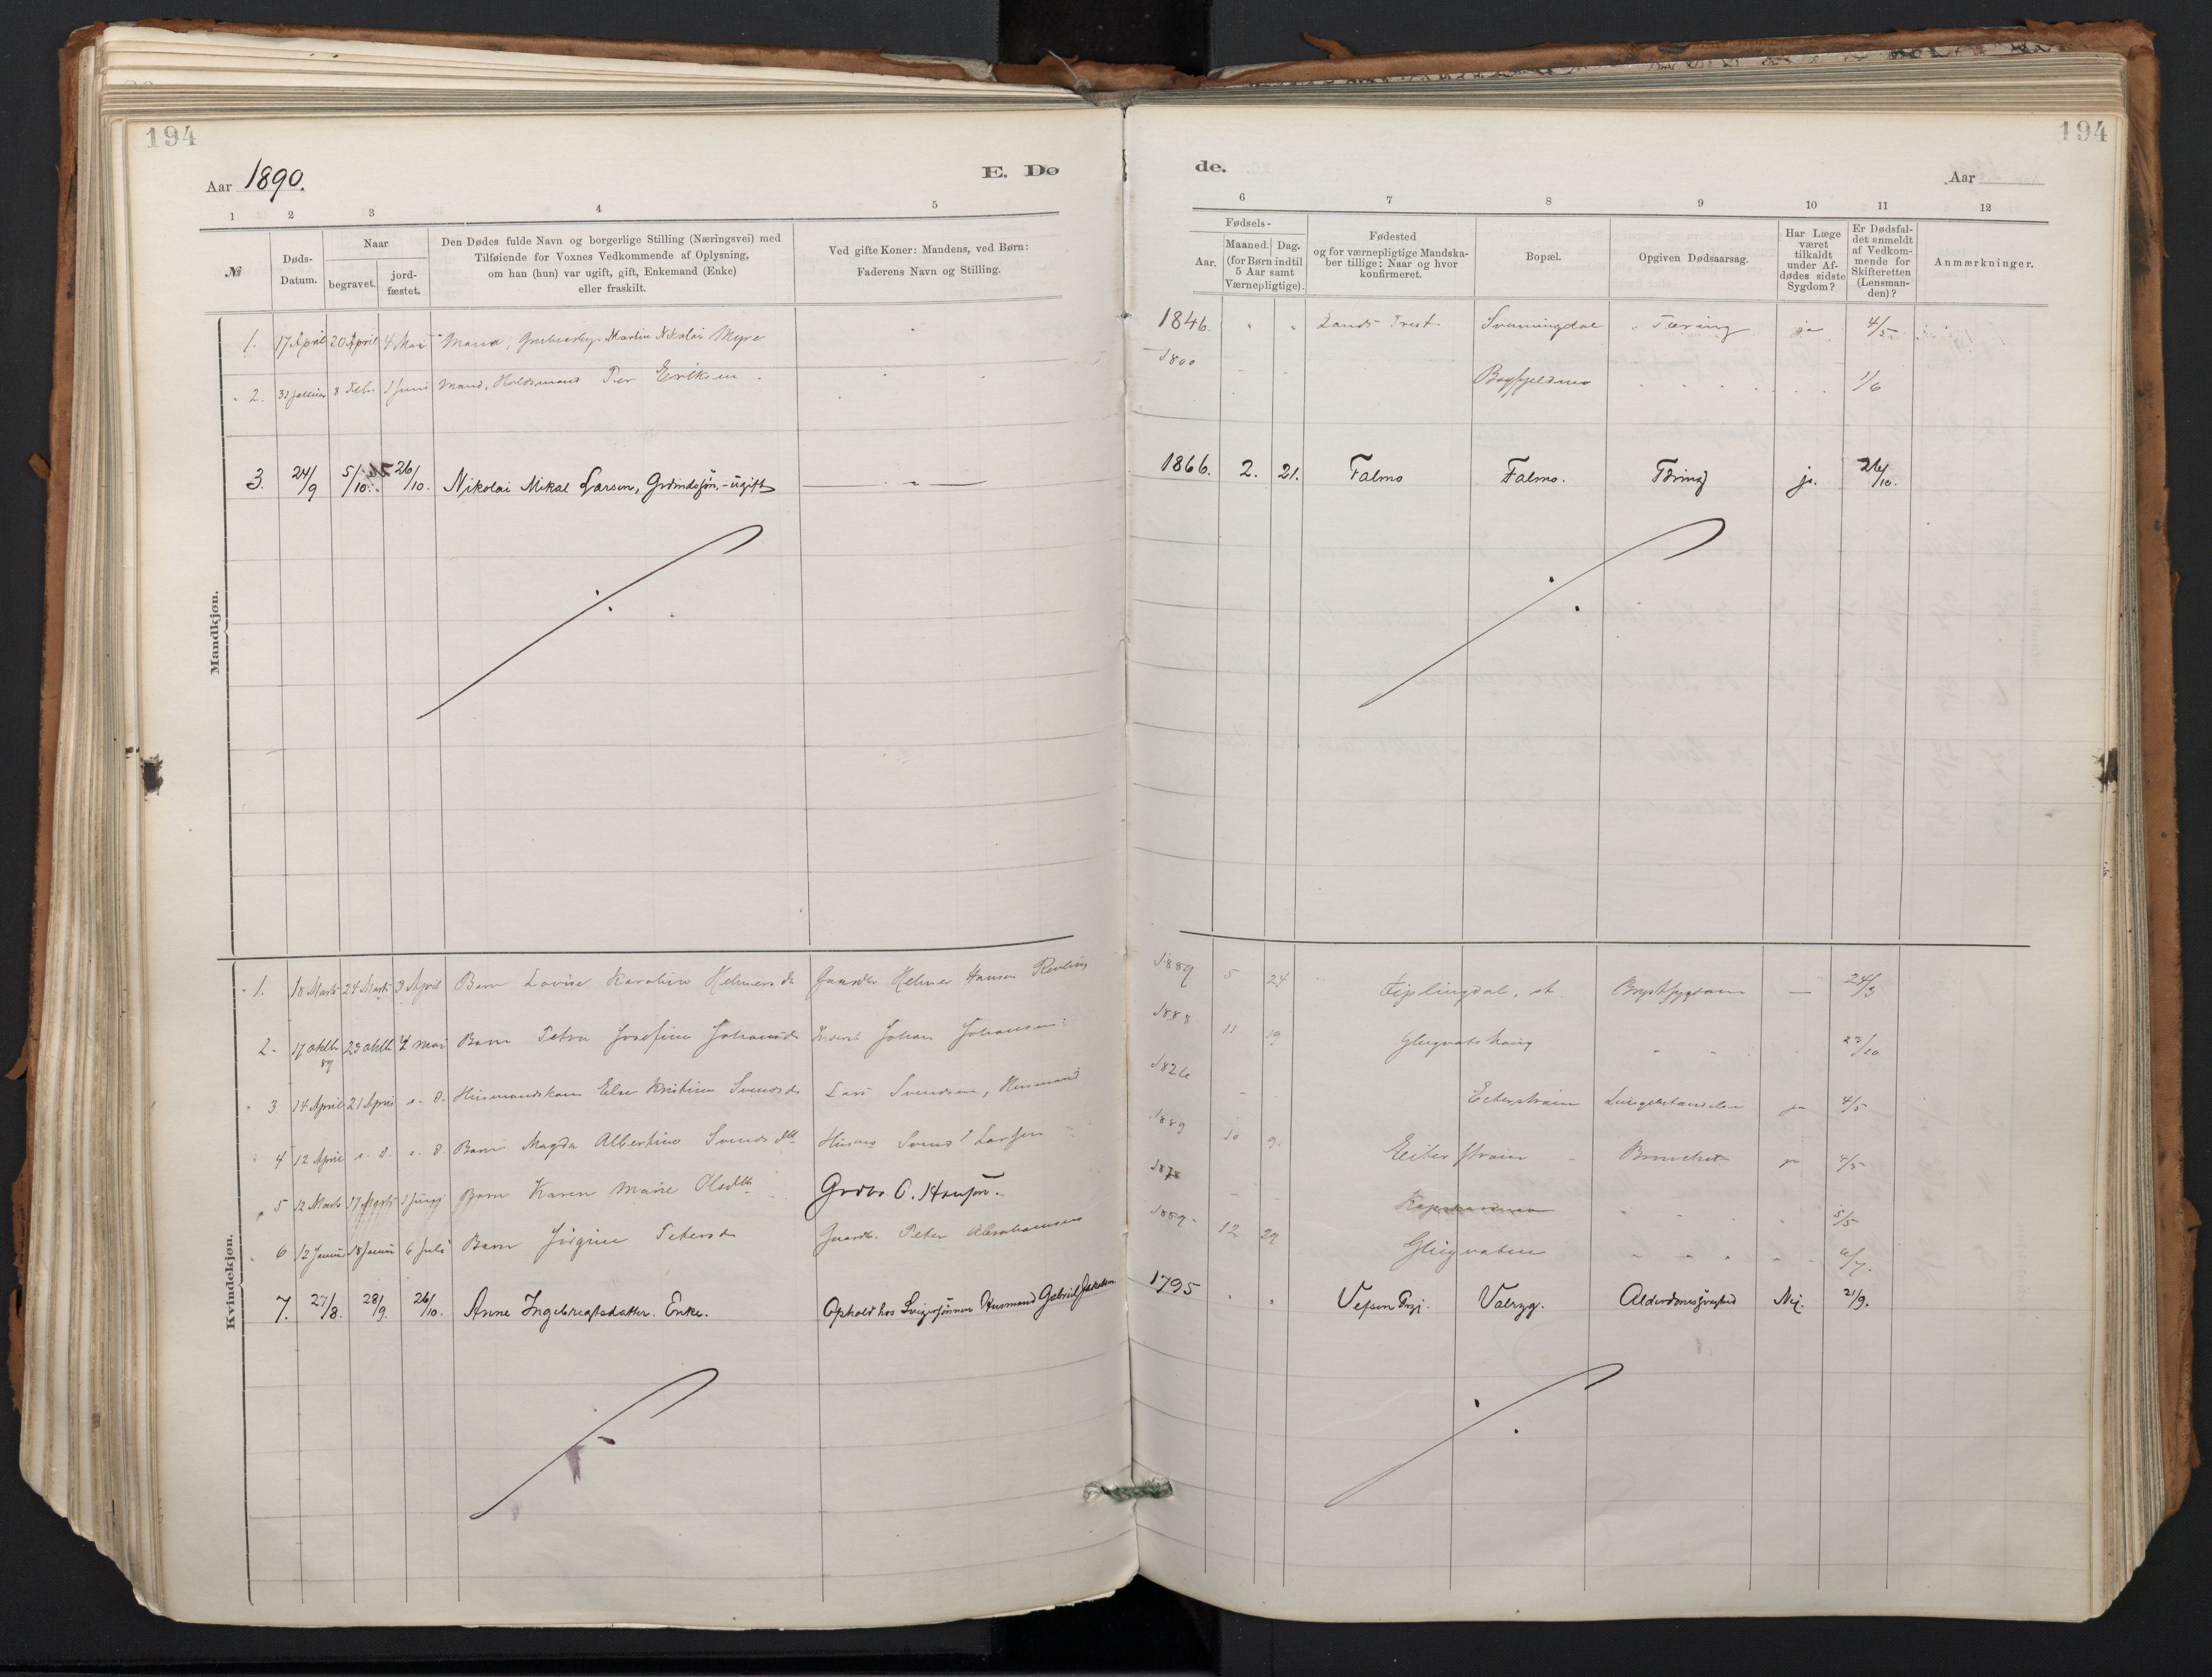 194
194
Aar 1890.
E. Dø
de.
Aar
1 2 3 4 5
6 7 8 9 10 11 12
№
Døds-Datum.
Naar
begravet.
jord-fæstet.
Den Dødes fulde Navn og borgerlige Stilling (Næringsvei) med
Tilføiende for Voxnes Vedkommende af Oplysning,
om han (hun) var ugift, gift, Enkemand (Enke)
eller fraskilt.
Ved gifte Koner: Mandens, ved Børn:
Faderens Navn og Stilling.
Fødsels-
Aar.
Maaned. Dag.
(for Børn indtil
5 Aar samt
Værnepligtige).
Fødested
og for værnepligtige Mandska-
ber tillige: Naar og hvor
konfirmeret.
Bopæl.
Opgiven Dødsaarsag.
Har Læge
været
tilkaldt
under Af-
dødes sidste
Sygdom?
Er Dødsfal-
det anmeldt
af Vedkom-
mende for
Skifteretten
(Lensman-
den)?
Anmærkninger.
Mandkjøn.
1. 17 April 20 April 4 Mai Mand, Martin Nikolai Myre 1846. Svenningdal Tæring ja 4/5
2. 31 Januar 8 Feb. 1 Juni Mand, Per Eriksen 1800 Bagfjeldmo 1/6
3. 24/9 5/10 26/10. Nikolai Mikal Larsen, Grdmdssøn, - ugift 1866. 2. 21. Falmo Falmo. Tæring ja. 26/10.
Kvindekjøn.
1. 18 Marts 24 Marts 3 April Barn Lovise Karoline Helmersd Gaardbr Helmer Hansen 1889 5 24 Fiplingdal Brystsygdom — 24/3
2. 17 oktb 89 23 oktb 4 mai Barn Petra Josefine Johansd Johan Johansen 1888 11 19 23/10
3 14 April 21 April s. d. Huusmandskone Else Kristine Svendsd Lars Svendsen, Huusmand 1826 Eiterstraum ja 4/5
4 12 April s. d. s. d. Barn Magda Albertine Svendsdtt Svend Larsen 1889 10 9. Eiterstraum ja 4/5
5 12 Marts 1 Juni Barn Karen Marie Olsdtt Grdbr O. Hansen. 1878 5/5
6 12 Januar 18 Januar 6 Juli Barn Jørgine Petersd Gaardb. Peter Abrahamsen 1889 12 29 6/7.
7. 27/8. 28/9. 26/10. Anne Ingebregtsdatter. Enke. Ophold hos Svigersønnen Husmand Gabriel Jakobsen 1795 Vefsen Prgj. Valryg. Alderdomssvaghed Nei. 21/9.